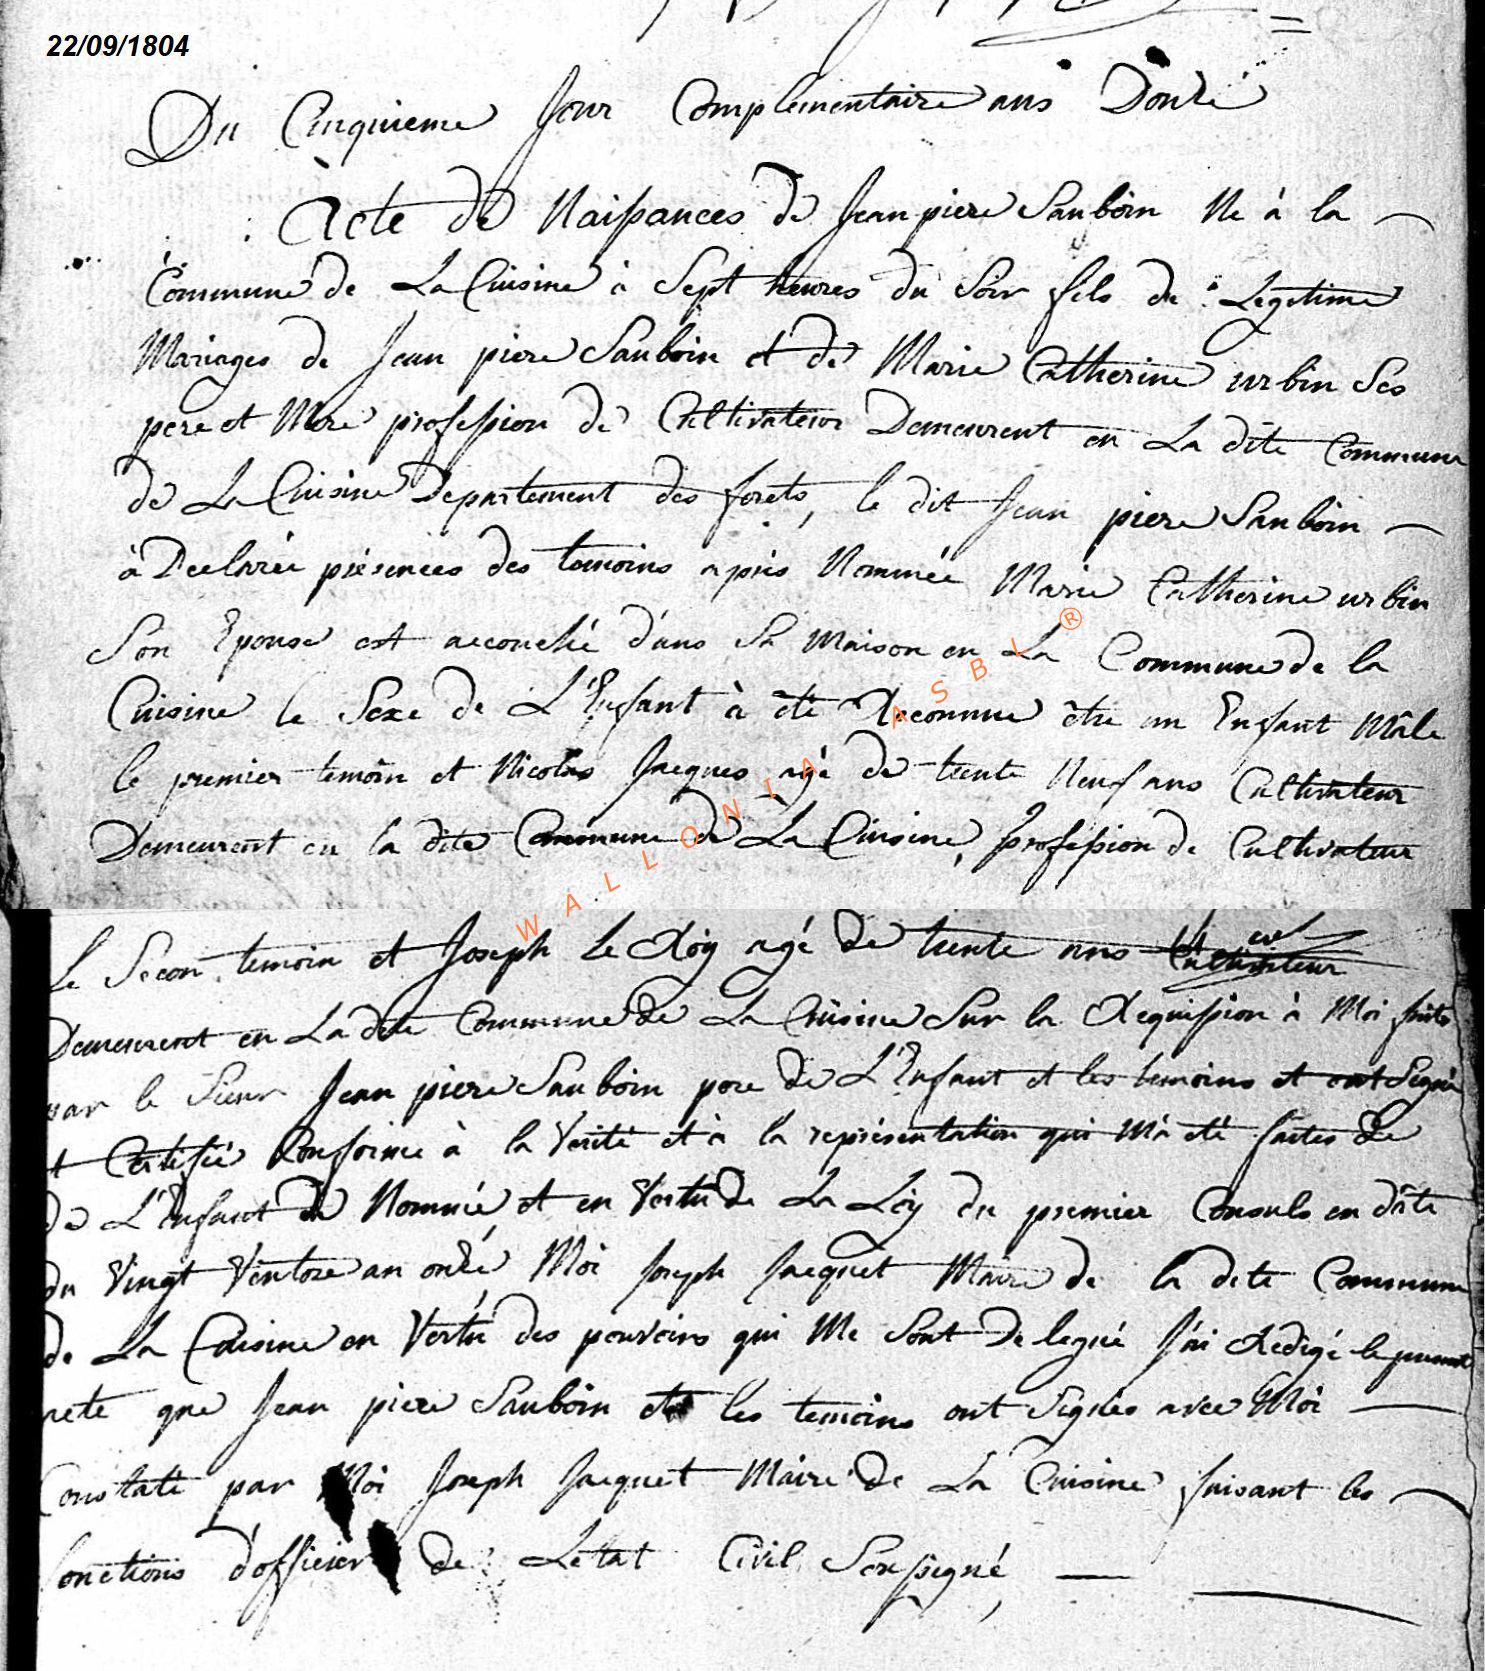 22/09/1804
Du Cinquieme Jour Complementaire ans Douzé
Acte de Naissances de Jean piere Sauboin Ne à la
Commune de La Cuisine à Sept heures du Soir fils de Legetime
Mariages de Jean piere Sauboin et de Marie Catherine urbin Ses
pere et Mere profession de Cultivateur Demeurent en La dite Commune
de La Cuisine Departement des forets, le dit Jean piere Sauboin
à Declarée présences des temoins après Nommée Marie Catherine urbin
Son Epouse est accouchée d'ans Sa Maison en La Commune de la
Cuisine le Sexe de L'Enfant à été Reconnue être un Enfant Mâle
le premier temoin et Nicolas Jacques agé de trente Neuf ans Cultivateur
Demeurent en la dite Commune de La Cuisine, profession de Cultivateur
WALLONIA ASBL ®
le Secon temoin et Joseph Le Roÿ agé de trente ans Cultivateur
Demeurent en La dite Commune de La Cuisine Sur la Requission à Moi faite
par le Sieur Jean piere Sauboin pere de L'Enfant et les temoins et ont Signé
et Certifié Conforme à la Verité et à la représentation qui M'à été faites de
de L'Enfant de Nommé et en Vertu de La Loÿ du premier Consuls en dâte
du Vingt Ventose an onzé, Moi Joseph Jacquet Maire de la dete Commune
de La Cuisine en Vertu des pouvoirs qui Me Sont De legué J'ai Redigé le present
acte que Jean piere Sauboin et les temoins ont Signés avec Moi
Constaté par Moi Joseph Jacquet Maire de La Cuisine faisant les
fonctions d'officier de Letat Civil Sousigné,